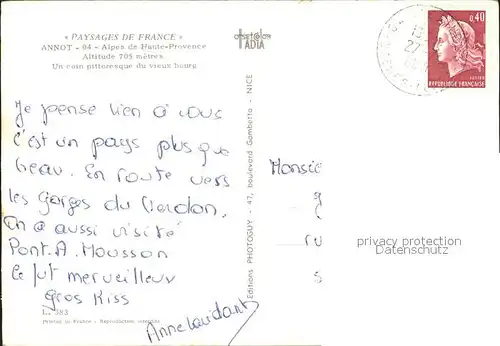 « PAYSAGES DE FRANCE »
ANNOT - 04 - Alpes de Haute-Provence
Altitude 705 mètres
Un coin pittoresque du vieux bourg
ADIA
0,40
REPUBLIQUE FRANÇAISE
Je pense bien à vous
c'est un pays plus que
beau. En route vers
les Gorges du Verdon.
On a aussi visité
Pont.A.Mousson
ce fut merveilleux
gros Kiss
L. 383
Printed in France - Reproduction interdite
Editions PHOTOGUY - 47, boulevard Gambetta - NICE
Monsie
ru
privacy protection
Datenschutz